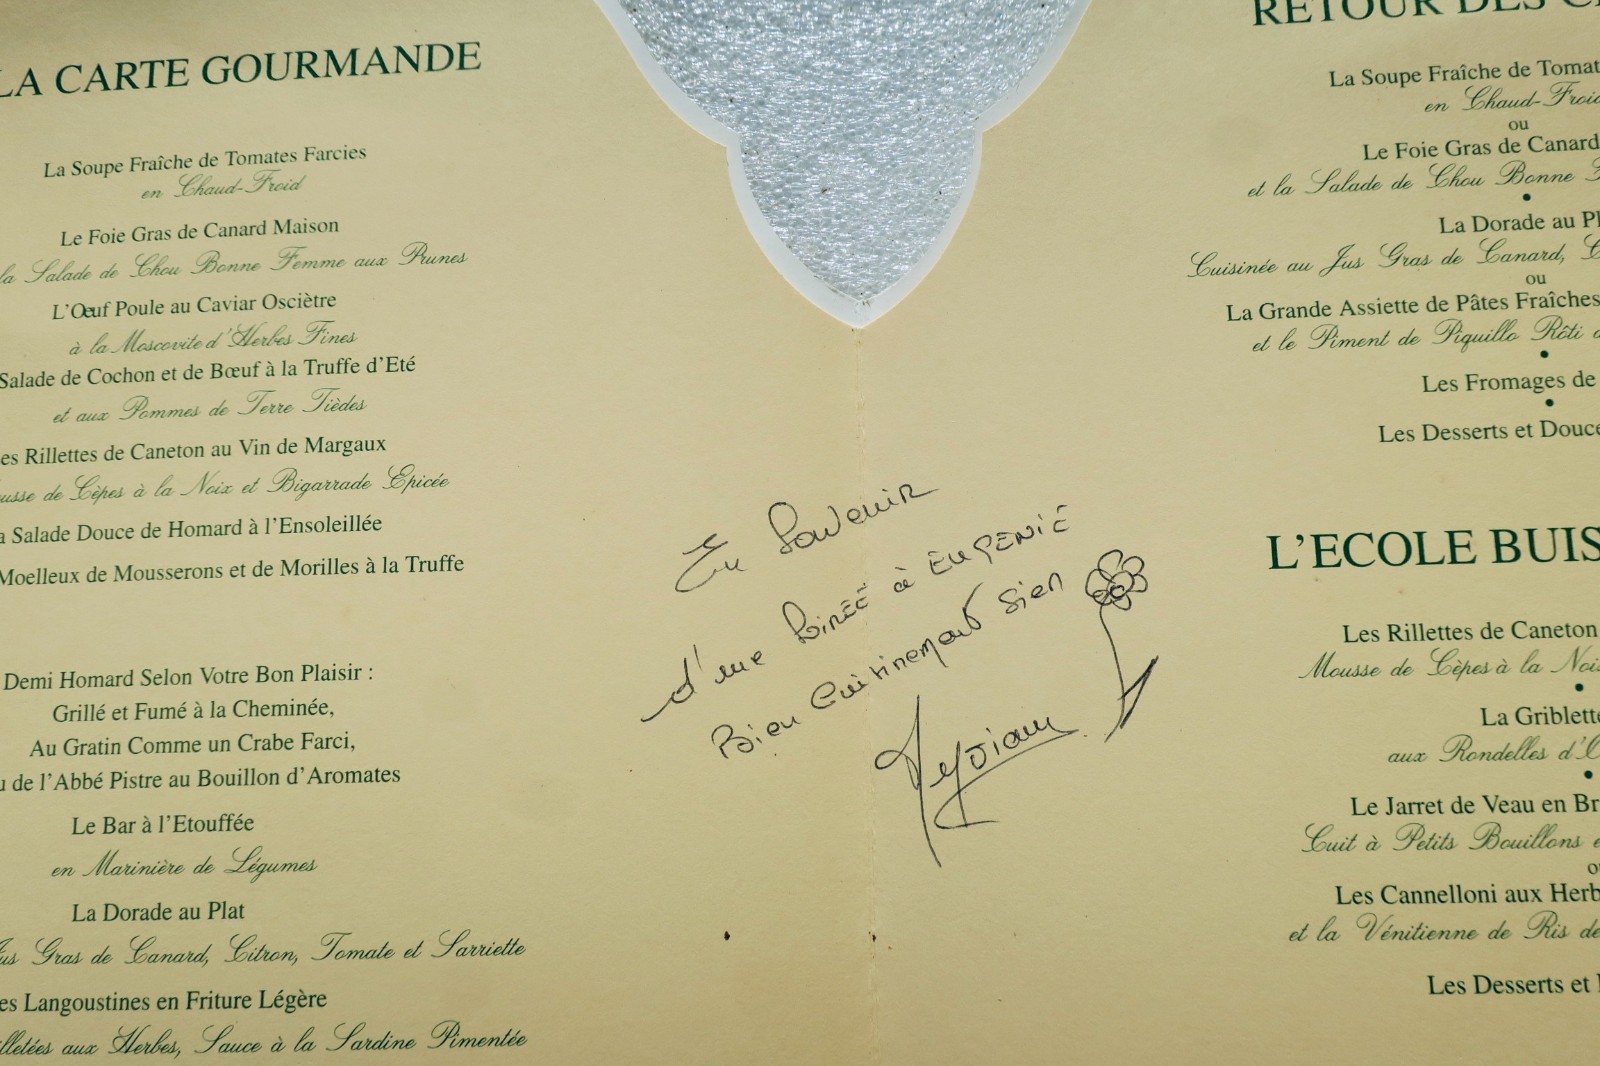 LA CARTE GOURMANDE
La Soupe Fraîche de Tomates Farcies
en Chaud-Froid
Le Foie Gras de Canard Maison
la Salade de Chou Bonne Femme aux Prunes
L'Œuf Poule au Caviar Osciètre
à la Moscovite d'Herbes Fines
Salade de Cochon et de Bœuf à la Truffe d'Eté
et aux Pommes de Terre Tièdes
Rillettes de Caneton au Vin de Margaux
de Cèpes à la Noix et Bigarrade Epicée
Salade Douce de Homard à l'Ensoleillée
Moelleux de Mousserons et de Morilles à la Truffe
Demi Homard Selon Votre Bon Plaisir :
Grillé et Fumé à la Cheminée,
Au Gratin Comme un Crabe Farci,
de l'Abbé Pistre au Bouillon d'Aromates
Le Bar à l'Etouffée
en Marinière de Légumes
La Dorade au Plat
Gras de Canard, Citron, Tomate et Sarriette
Langoustines en Friture Légère
aux Herbes, Sauce à la Sardine Pimentée
En Souvenir
d'une Soirée à EUGENIE
Bien Cuisinement Sien
RETOUR DES
La Soupe Fraîche de
en
ou
Le Foie Gras de Canard
et la Salade de Chou Bonne
La Dorade au
Cuisinée au Jus Gras de Canard,
ou
La Grande Assiette de Pâtes Fraîches
et le Piment de Piquillo Rôti
Les Fromages de
Les Desserts et
L'ECOLE
Les Rillettes de Caneton
Mousse de Cèpes à la
La
aux Rondelles
Le Jarret de Veau en
Cuit à Petits Bouillons
Les Cannelloni aux
et la Vénitienne de Ris
Les Desserts et